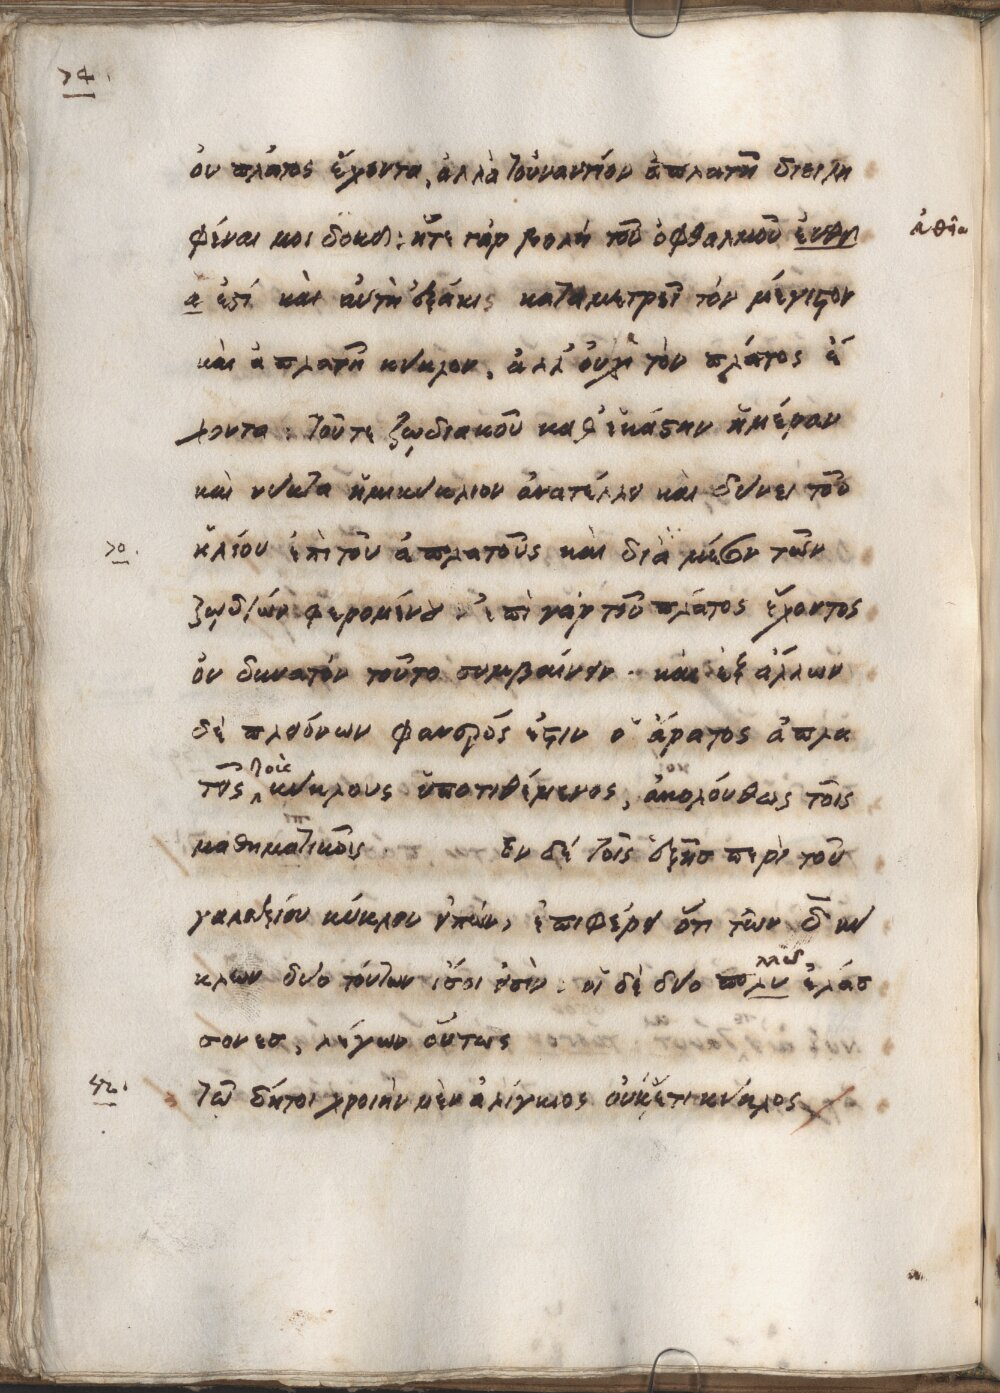 74.
ὀυ πλάτος ἔχοντα, ἀλλὰ τοὐναντίον ἀπλατῆ διειλη
φέναι μοι δοκεῖ: ἥτε γὰρ βολὴ τοῦ ὀφθαλμοῦ ἐυθει ἀυθεῖα
α ἐστί καὶ ἀυτὴ ἑξάκις καταμετρεῖ τόν μέγιστον
καὶ ἀπλατῆ κύκλον, ἀλλ' ὀυχὶ τὸν πλάτος ἔ
χοντα: τοῦτε ζῳδιακοῦ καθ' ἑκάστην ἡμέραν
καὶ νύκτα ἡμικύκλιον ἀνατέλλει καὶ δύνει τοῦ
70.
ἡλίου ἐπὶ τοῦ ἀπλατοῦς καὶ διὰ μέσων τῶν
ζῳδίων φερομένου. ἐπὶ γάρ τοῦ πλάτος ἔχοντος
ὀυ δυνατόν τοῦτο συμβαίνειν. καὶ ἐξ ἄλλων
δὲ πλειόνων φανερός ἐστιν ὁ ἄρατος ἀπλα
τοῦς τοὺς κύκλους ὑποτιθέμενος, ἀκολούθως τοῖς
μαθηματικοῖς Ἐν δέ τοῖς ἑξῆσ περὶ τοῦ
γαλαξίου κύκλου ἐιπών, ἐπιφέρει ὅτι τῶν δ̅ κυ
κλων δύο τούτων ἴσοι ἐισὶν: οἱ δὲ δύο πολυ λλῶ ἐλάσ
σονεσ, λέγων οὕτως
42.
τῶ δήτοι χροιὴν μὲν ἀλίγκιος ὀυκἔτι κύκλος